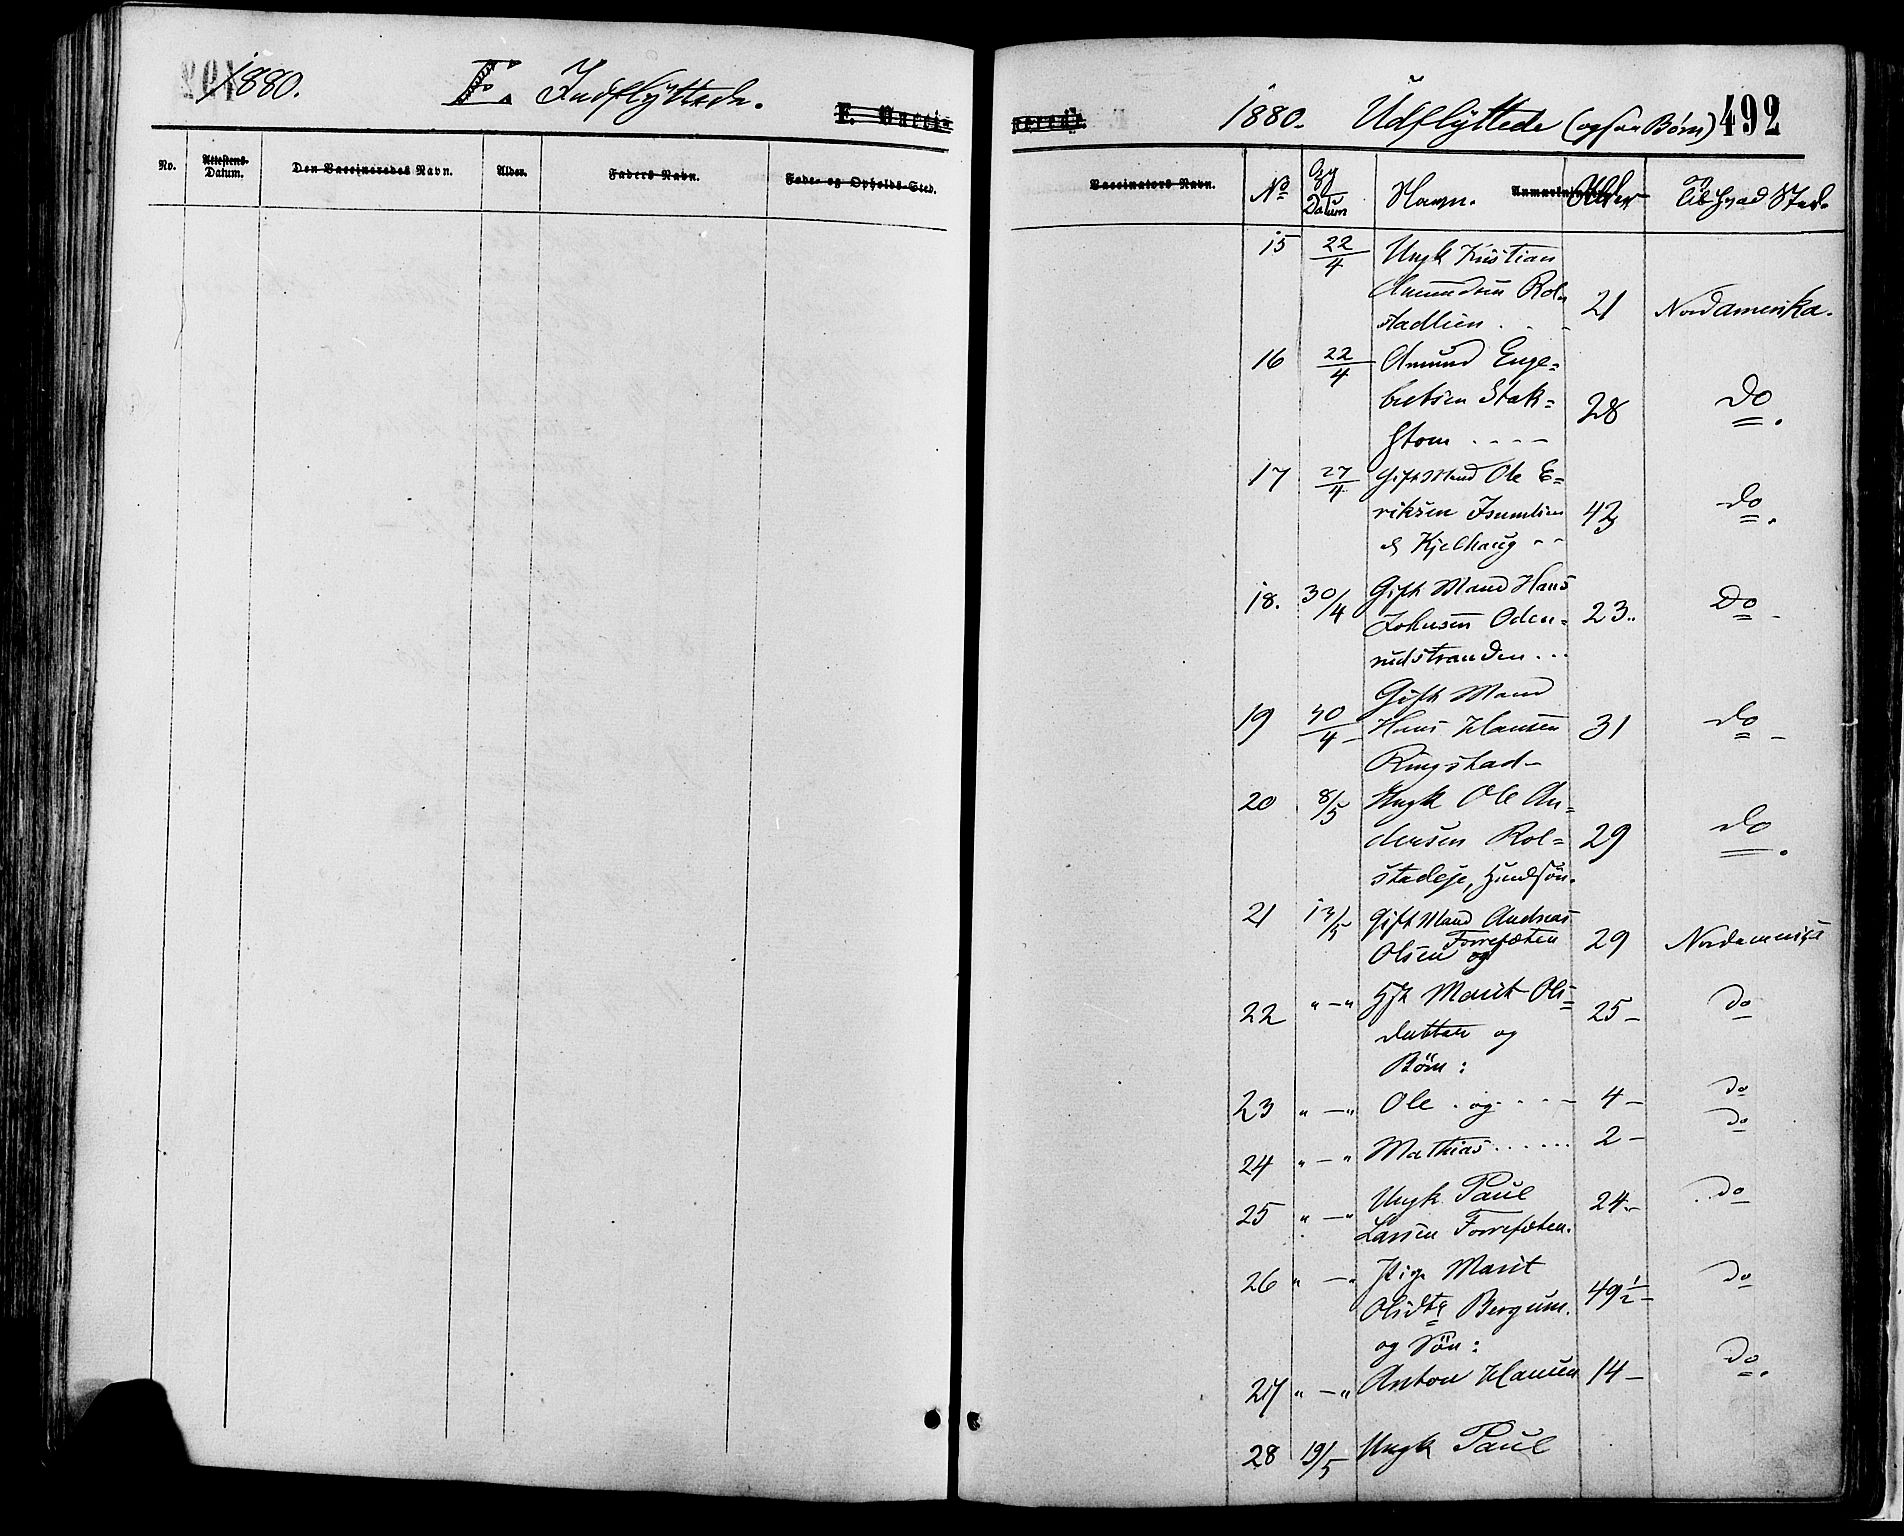 1880. F. Indflyttede.
F. Vacci-
No.
Attestens-
Datum.
Den Vaccineredes Navn.
Alder.
Faders Navn.
Føde- og Opholds-Sted.
nerede.
1880. Udflyttede (ogsaa Børn) 492
Vaccinators Navn.
No
Datum
Navn.
Alder
Til hvad Sted.
15 22/4 Ungk Kristian
Amundsen Rol-
stadlien . . . 21 Nordamerika.
16 22/4 Amund Enge-
bretsen Stak-
stom . . . . 28 Do.
17 27/4 Gift Mand Ole E-
riksen Isumlien
Kjelhaug - - 42 Do.
18. 30/4 Gift Mand Hans
Johnsen Oden-
rudstranden . . . 23.. Do -
19 30/4 Gift Mand
Hans Hansen 31 Do -
Ringstad -
20 8/5 Ungk Ole An-
dersen Rol- 29 Do.
stadeje,
21 13/5 Gift Mand Andreas
Olsen Forrefoten og 29 Nordamerika
22 " - " Marit Ols-
datter og 25 - Do
Børn:
23 " - " Ole . og . . . . 4 - Do
24 " - " Mathias . . . . . . 2 - Do
25 " - " Ungk Paul
Larsen Forrefoten. 24 - Do
26 " - " Pige Marit
Olsdtr Bergum. 49 1/2 - Do
og Søn:
27 " - " Anton Hansen 14 - Do.
28 19/5 Ungk Paul